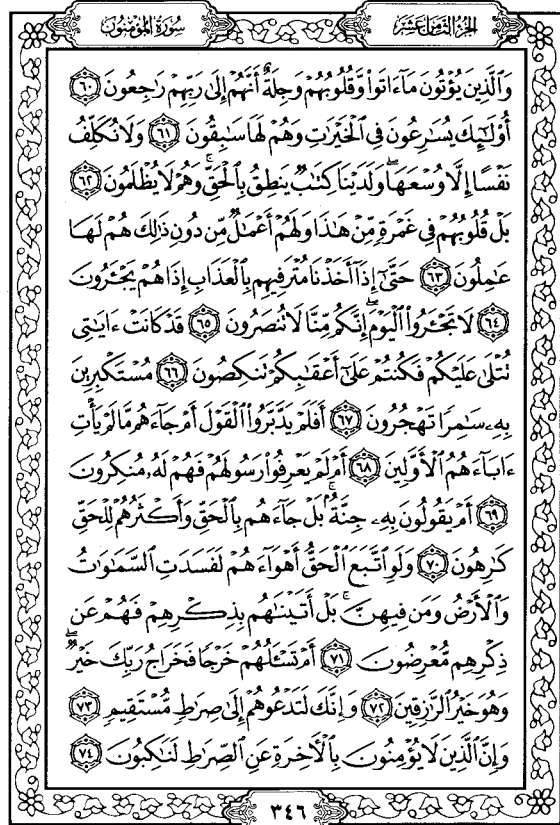 سُورَةُ المُؤْمِنُون
الجُزْءُ الثَّامِنَ عَشَرَ
وَٱلَّذِينَ يُؤْتُونَ مَآءَاتَوا۟ وَّقُلُوبُهُمْ وَجِلَةٌ أَنَّهُمْ إِلَىٰ رَبِّهِمْ رَٰجِعُونَ ٦٠
أُو۟لَٰٓئِكَ يُسَٰرِعُونَ فِى ٱلْخَيْرَٰتِ وَهُمْ لَهَا سَٰبِقُونَ ٦١ وَلَا نُكَلِّفُ
نَفْسًا إِلَّا وُسْعَهَا ۖ وَلَدَيْنَا كِتَٰبٌ يَنطِقُ بِٱلْحَقِّ ۚ وَهُمْ لَا يُظْلَمُونَ ٦٢
بَلْ قُلُوبُهُمْ فِى غَمْرَةٍ مِّنْ هَٰذَا وَلَهُمْ أَعْمَٰلٌ مِّن دُونِ ذَٰلِكَ هُمْ لَهَا
عَٰمِلُونَ ٦٣ حَتَّىٰٓ إِذَآ أَخَذْنَا مُتْرَفِيهِم بِٱلْعَذَابِ إِذَا هُمْ يَجْـَٔرُونَ
٦٤ لَا تَجْـَٔرُوا۟ ٱلْيَوْمَ ۖ إِنَّكُم مِّنَّا لَا تُنصَرُونَ ٦٥ قَدْ كَانَتْ ءَايَٰتِى
تُتْلَىٰ عَلَيْكُمْ فَكُنتُمْ عَلَىٰٓ أَعْقَٰبِكُمْ تَنكِصُونَ ٦٦ مُسْتَكْبِرِينَ
بِهِۦ سَٰمِرًا تَهْجُرُونَ ٦٧ أَفَلَمْ يَدَّبَّرُوا۟ ٱلْقَوْلَ أَمْ جَآءَهُم مَّا لَمْ يَأْتِ
ءَابَآءَهُمُ ٱلْأَوَّلِينَ ٦٨ أَمْ لَمْ يَعْرِفُوا۟ رَسُولَهُمْ فَهُمْ لَهُۥ مُنكِرُونَ
٦٩ أَمْ يَقُولُونَ بِهِۦ جِنَّةٌۢ ۚ بَلْ جَآءَهُم بِٱلْحَقِّ وَأَكْثَرُهُمْ لِلْحَقِّ
كَٰرِهُونَ ٧٠ وَلَوِ ٱتَّبَعَ ٱلْحَقُّ أَهْوَآءَهُمْ لَفَسَدَتِ ٱلسَّمَٰوَٰتُ
وَٱلْأَرْضُ وَمَن فِيهِنَّ ۚ بَلْ أَتَيْنَٰهُم بِذِكْرِهِمْ فَهُمْ عَن
ذِكْرِهِم مُّعْرِضُونَ ٧١ أَمْ تَسْـَٔلُهُمْ خَرْجًا فَخَرَاجُ رَبِّكَ خَيْرٌ ۖ
وَهُوَ خَيْرُ ٱلرَّٰزِقِينَ ٧٢ وَإِنَّكَ لَتَدْعُوهُمْ إِلَىٰ صِرَٰطٍ مُّسْتَقِيمٍ ٧٣
وَإِنَّ ٱلَّذِينَ لَا يُؤْمِنُونَ بِٱلْءَاخِرَةِ عَنِ ٱلصِّرَٰطِ لَنَٰكِبُونَ ٧٤
٣٤٦